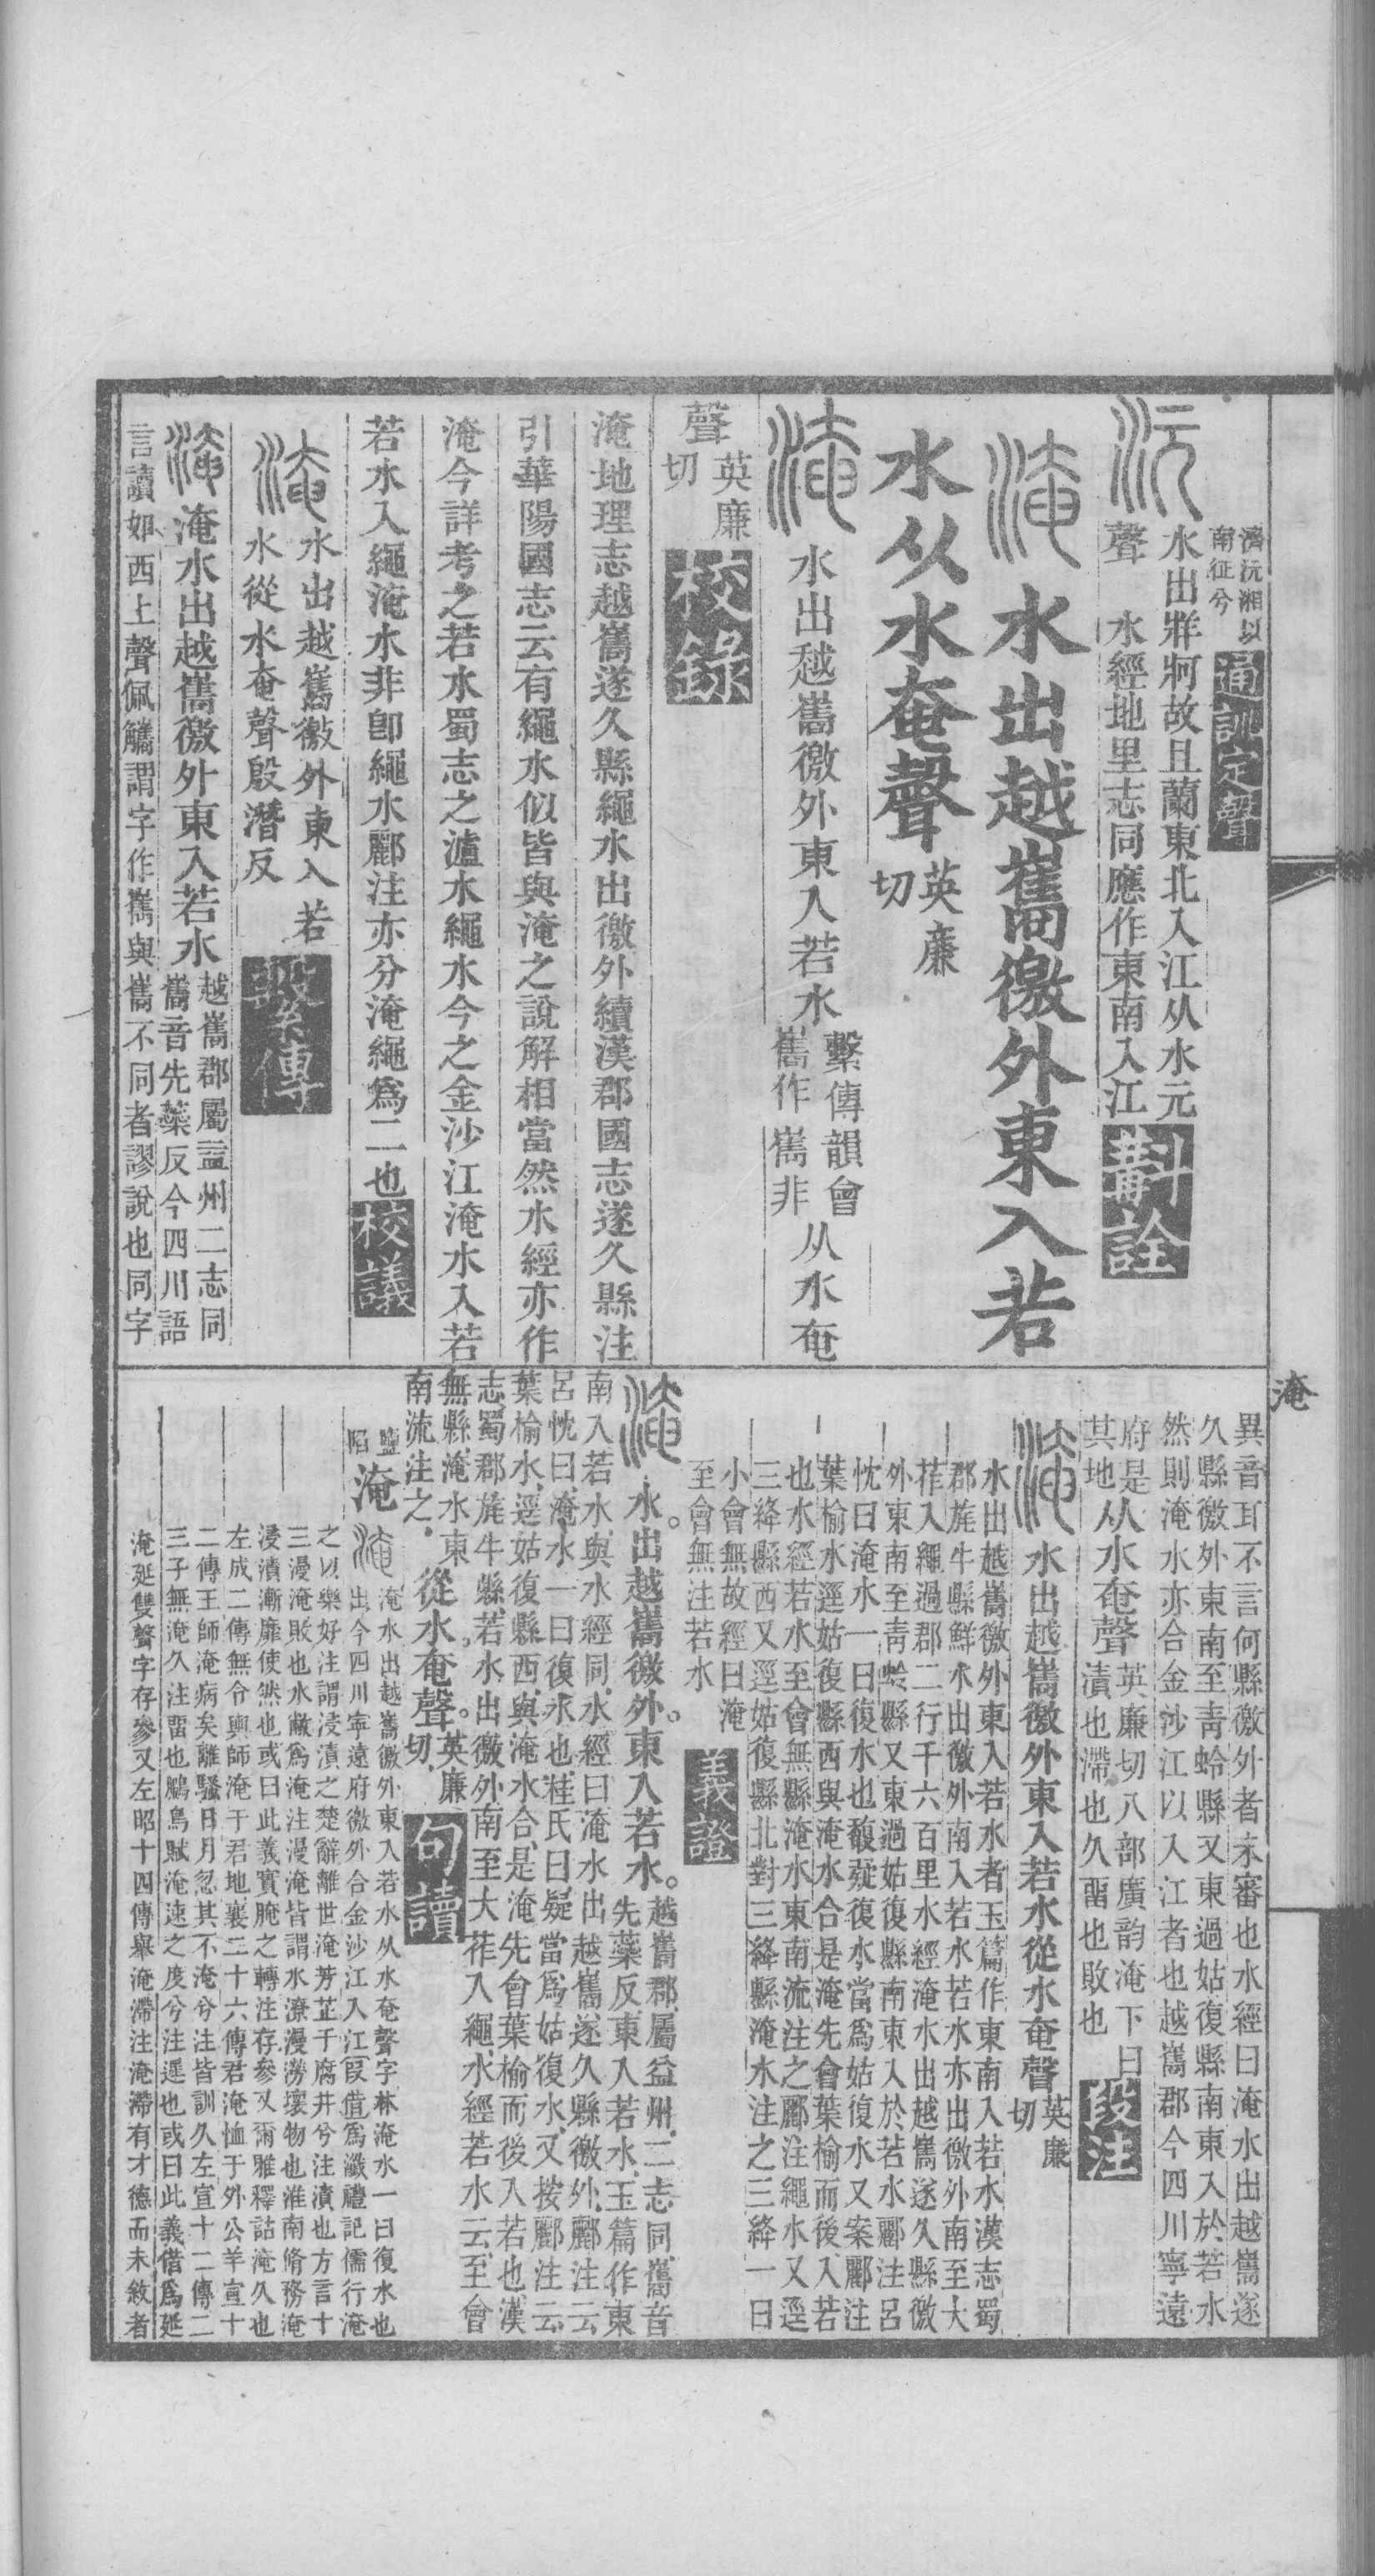 濟沅湘以
南征兮
通訓定聲
沅
水出牂牁故且蘭東北入江从水元
聲　水經地里志同應作東南入江
斠詮
淹　水出越巂徼外東入若
水从水奄聲
英廉
切
淹
水出越巂徼外東入若水
繫傳韻會
巂作㠜非
从水奄
聲
英廉
切
校錄
淹地理志越巂遂久縣繩水出徼外續漢郡國志遂久縣注
引華陽國志云有繩水似皆與淹之說解相當然水經亦作
淹今詳考之若水蜀志之瀘水繩水今之金沙江淹水入若
若水入繩淹水非卽繩水酈注亦分淹繩爲二也
校議
淹
水出越巂徼外東入若
水從水奄聲殷潛反
繫傳
淹
淹水出越巂徼外東入若水
越巂郡屬益州二志同
巂音先蘂反今四川語
言讀如西上聲佩觿謂字作㠜與巂不同者謬說也同字
淹
異音耳不言何縣徼外者未審也水經曰淹水出越巂遂
久縣徼外東南至青蛉縣又東過姑復縣南東入於若水
然則淹水亦合金沙江以入江者也越巂郡今四川寧遠
府是
其地
从水奄聲
英廉切八部廣韵淹下曰
漬也滯也久畱也敗也
段注
淹
水出越巂徼外東入若水從水奄聲
英廉
切
水出越巂徼外東入若水者玉篇作東南入若水漢志蜀
郡旄牛縣鮮水出徼外南入若水若水亦出徼外南至大
莋入繩過郡二行千六百里水經淹水出越巂遂久縣徼
外東南至青蛉縣又東過姑復縣南東入於若水酈注呂
忱曰淹水一曰復水也馥疑復水當爲姑復水又案酈注
葉榆水逕姑復縣西與淹水合是淹先會葉榆而後入若
也水經若水至會無縣淹水東南流注之酈注繩水又逕
三絳縣西又逕姑復縣北對三絳縣淹水注之三絳一曰
小會無故經曰淹
至會無注若水
義證
淹
水。出越巂徼外。東入若水。
越巂郡。屬益州。二志同。巂音
先蘂反東入若水、玉篇作東
南入若水、與水經同、水經曰淹水出越巂遂久縣徼外、酈注云
呂忱曰、淹水一曰復水也、桂氏曰疑當爲姑復水、又按酈注云
葉榆水、逕姑復縣西、與淹水合、是淹先會葉榆而後入若也漢
志蜀郡旄牛縣若水出徼外南至大莋入繩、水經若水云、至會
無縣、淹水東
南流注之、
從水。奄聲。
英廉
切、
句讀
鹽
陷
淹
淹水出越巂徼外東入若水从水奄聲字林淹水一曰復水也
出今四川寧遠府徼外合金沙江入江叚借爲瀸禮記儒行淹
之以樂好注謂浸漬之楚辭離世淹芳芷于腐井兮注漬也方言十
三漫淹敗也水敝爲淹注漫淹皆謂水潦漫澇壞物也淮南脩務淹
浸漬漸靡使然也或曰此義實腌之轉注存參又爾雅釋詁淹久也
左成二傳無令輿師淹于君地襄二十六傳君淹恤于外公羊宣十
二傳王師淹病矣離騷日月忽其不淹兮注皆訓久左宣十二傳二
三子無淹久注畱也鵩鳥賦淹速之度兮注遲也或曰此義借爲延
淹延雙聲字存參又左昭十四傳舉淹滯注淹滯有才德而未敘者